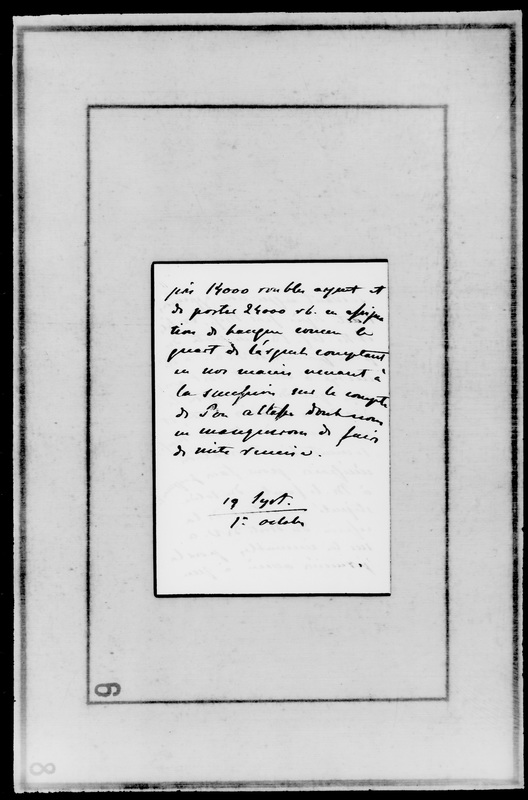 près 14000 roubles argent et
de porter 24000 rb. en assigna
tion de banque comme le
quart de l'argent comptant
en nos mains revenant à
la succession sur le compte
de Son altesse dont nous
ne manquerons de faire
de suite remise.
19 Sept.
1r octobr
6
8